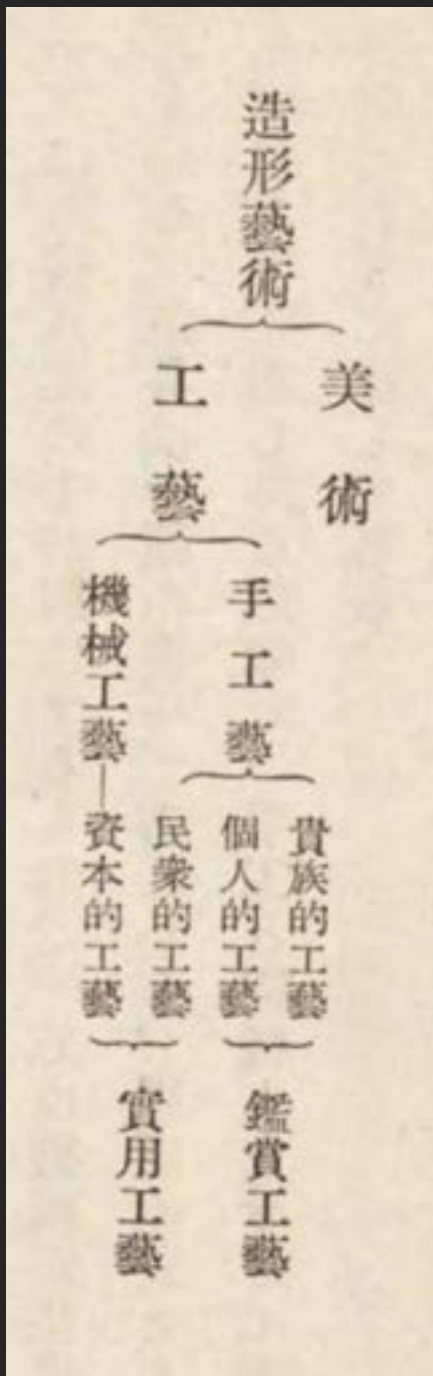 造形藝術
美術
工藝
手工藝
機械工藝—資本的工藝
貴族的工藝
個人的工藝
民衆的工藝
鑑賞工藝
實用工藝